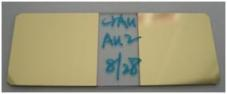 CrAu
Au2
8/28